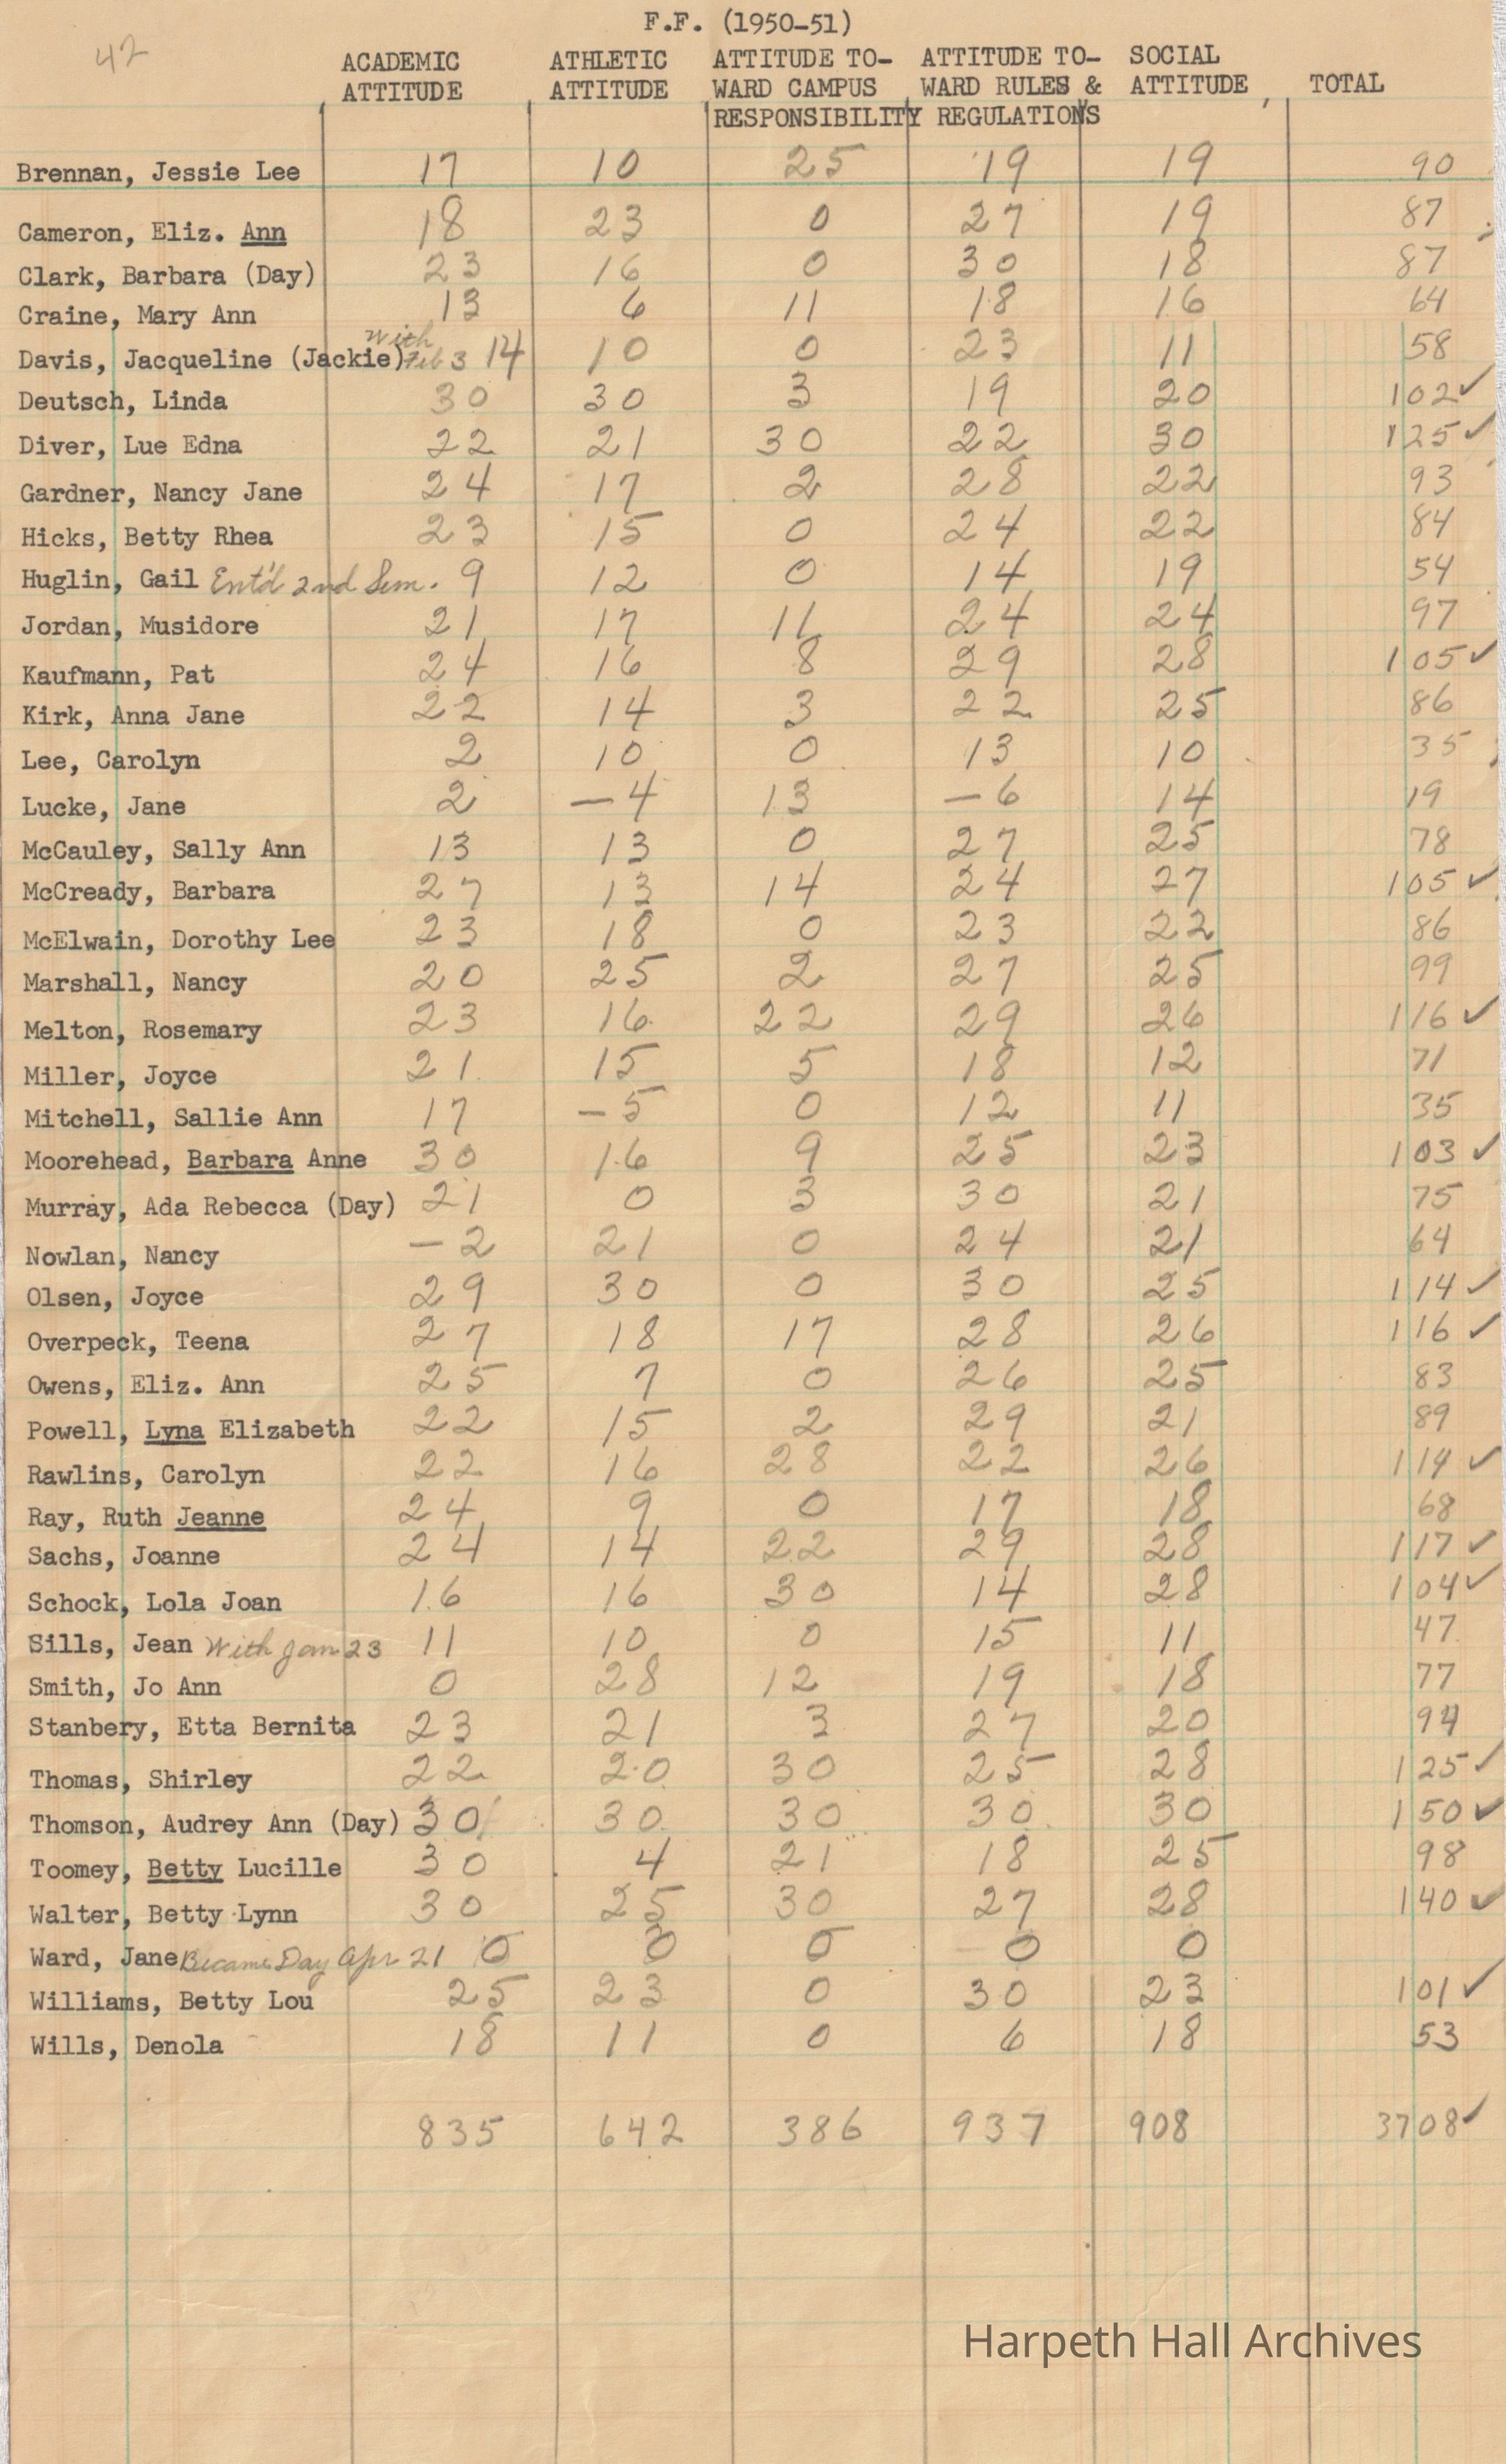 F.F. (1950-51)
42
ACADEMIC ATHLETIC ATTITUDE TO- ATTITUDE TO- SOCIAL
ATTITUDE ATTITUDE WARD CAMPUS WARD RULES & ATTITUDE, TOTAL
RESPONSIBILITY REGULATIONS
Brennan, Jessie Lee 17 10 25 19 19 90
Cameron, Eliz. Ann 18 23 0 27 19 87
Clark, Barbara (Day) 23 16 0 30 18 87
Craine, Mary Ann 13 6 11 18 16 64
Davis, Jacqueline (Jackie) With Feb 3 14 10 0 23 11 58
Deutsch, Linda 30 30 3 19 20 102✓
Diver, Lue Edna 22 21 30 22 30 125✓
Gardner, Nancy Jane 24 17 2 28 22 93
Hicks, Betty Rhea 23 15 0 24 22 84
Huglin, Gail Ent'd 2nd Sem. 9 12 0 14 19 54
Jordan, Musidore 21 17 11 24 24 97
Kaufmann, Pat 24 16 8 29 28 105✓
Kirk, Anna Jane 22 14 3 22 25 86
Lee, Carolyn 2 10 0 13 10 35
Lucke, Jane 2 -4 13 -6 14 19
McCauley, Sally Ann 13 13 0 27 25 78
McCready, Barbara 27 13 14 24 27 105✓
McElwain, Dorothy Lee 23 18 0 23 22 86
Marshall, Nancy 20 25 2 27 25 99
Melton, Rosemary 23 16 22 29 26 116✓
Miller, Joyce 21 15 5 18 12 71
Mitchell, Sallie Ann 17 -5 0 12 11 35
Moorehead, Barbara Anne 30 16 9 25 23 103✓
Murray, Ada Rebecca (Day) 21 0 3 30 21 75
Nowlan, Nancy -2 21 0 24 21 64
Olsen, Joyce 29 30 0 30 25 114✓
Overpeck, Teena 27 18 17 28 26 116✓
Owens, Eliz. Ann 25 7 0 26 25 83
Powell, Lyna Elizabeth 22 15 2 29 21 89
Rawlins, Carolyn 22 16 28 22 26 114✓
Ray, Ruth Jeanne 24 9 0 17 18 68
Sachs, Joanne 24 14 22 29 28 117✓
Schock, Lola Joan 16 16 30 14 28 104✓
Sills, Jean With Jan 23 11 10 0 15 11 47
Smith, Jo Ann 0 28 12 19 18 77
Stanbery, Etta Bernita 23 21 3 27 20 94
Thomas, Shirley 22 20 30 25 28 125✓
Thomson, Audrey Ann (Day) 30 30 30 30 30 150✓
Toomey, Betty Lucille 30 4 21 18 25 98
Walter, Betty Lynn 30 25 30 27 28 140✓
Ward, Jane Became Day Apr 21 0 0 0 0 0
Williams, Betty Lou 25 23 0 30 23 101✓
Wills, Denola 18 11 0 6 18 53
835 642 386 937 908 3708✓
Harpeth Hall Archives